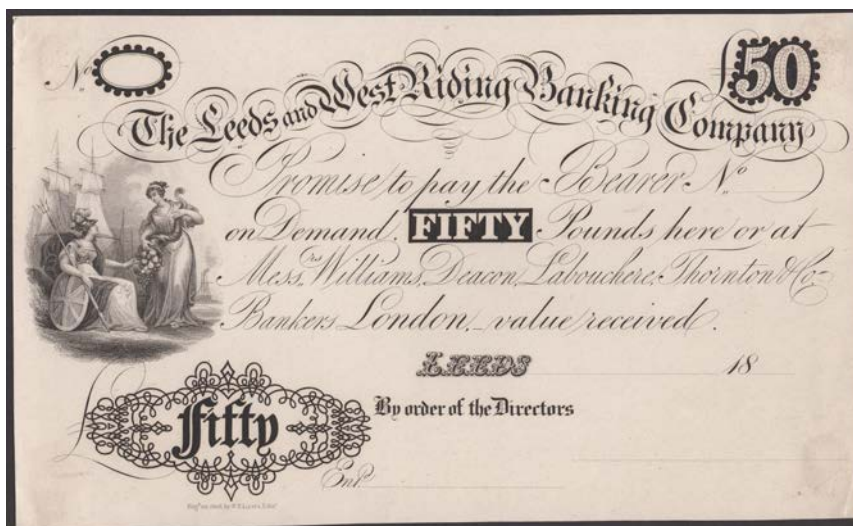 No
£50
The Leeds and West Riding Banking Company
Promise to pay the Bearer No
on Demand, FIFTY Pounds here or at
Messrs Williams, Deacon, Labouchere, Thornton & Co.
Bankers London, value received.
LEEDS 18
£ Fifty
By order of the Directors
Entd